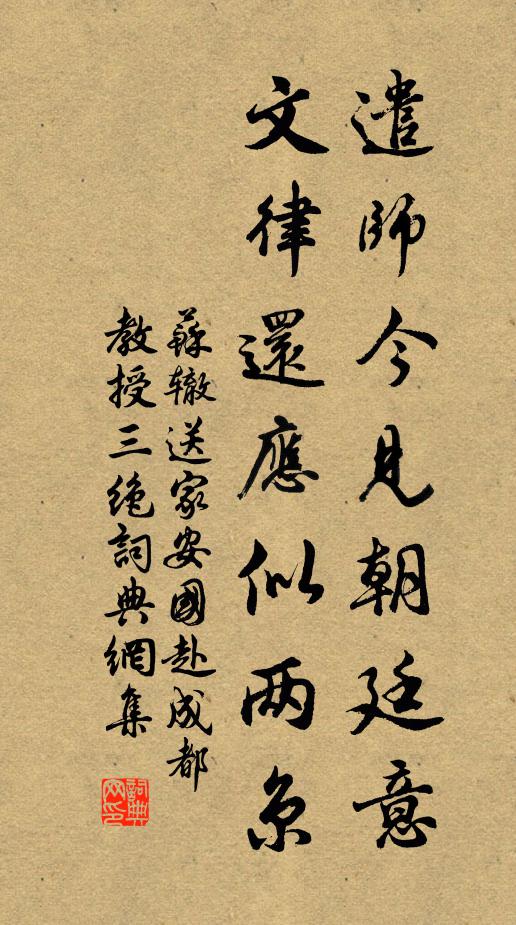 遣師今見朝廷意
文律還應似两京
蘇辙送家安國赴成都
教授三绝詞典網集
詞典网印